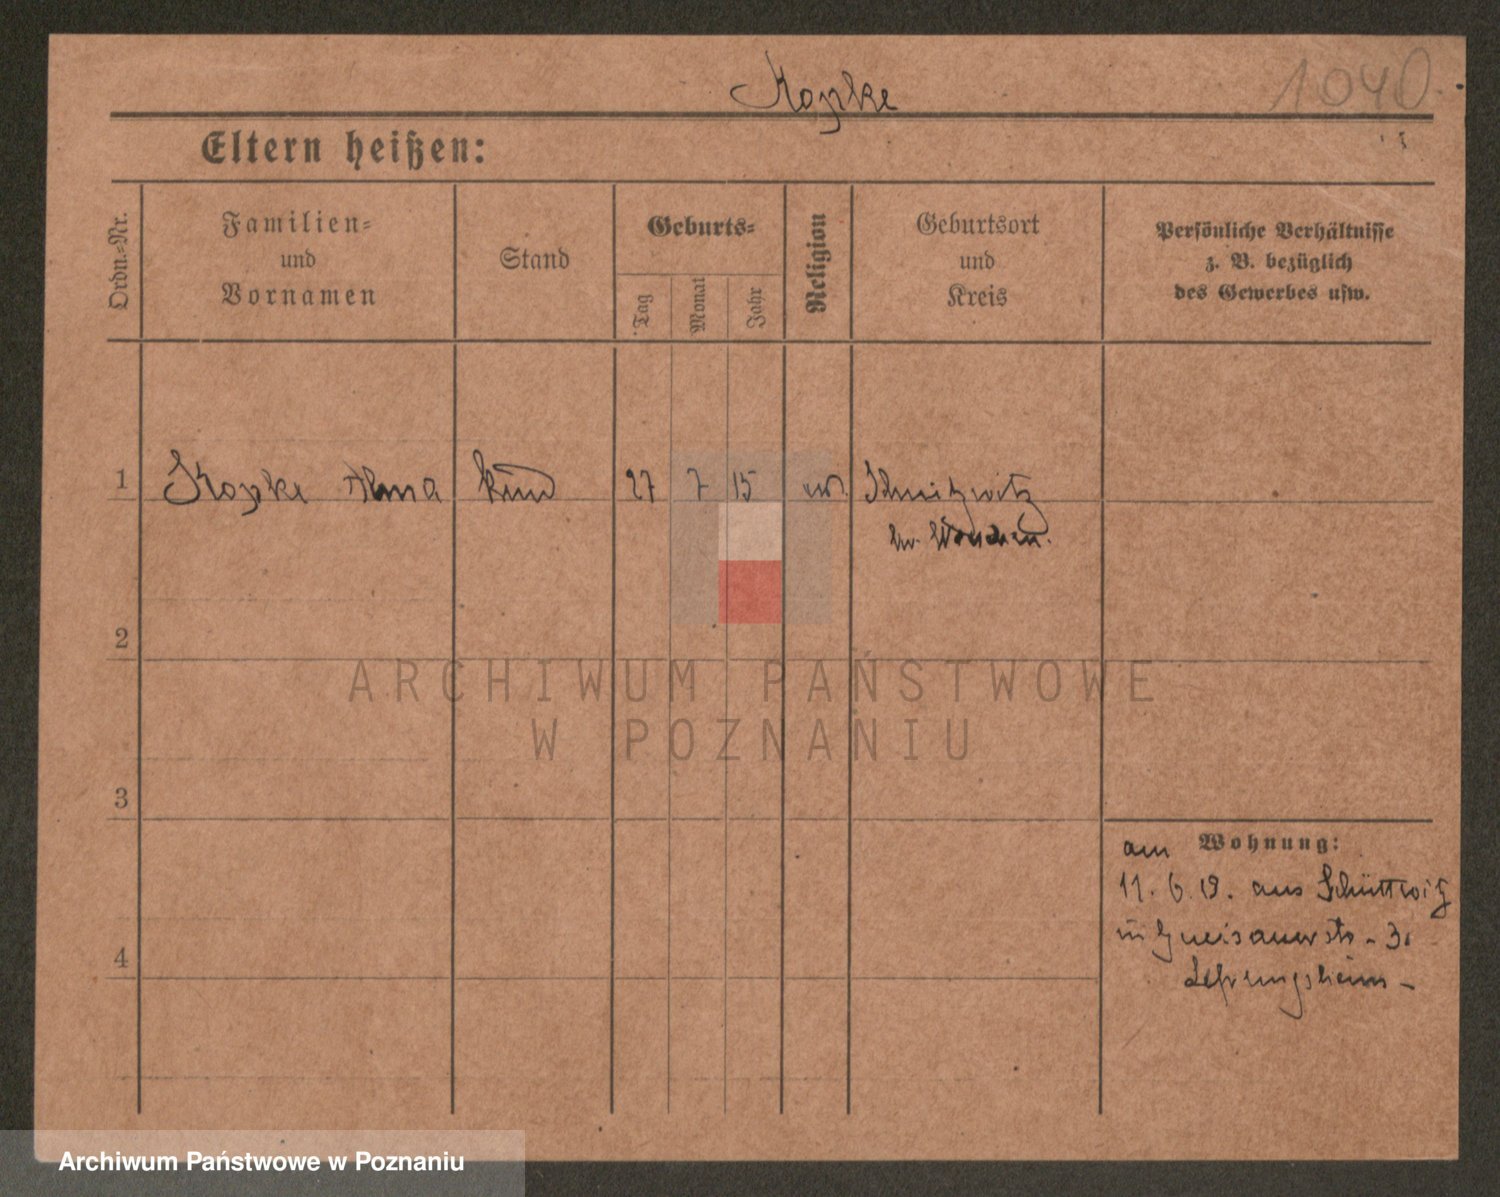 Kopke
1040.
Eltern heißen:
Ordn.-Nr.
Familien-
und
Vornamen
Stand
Geburts-
Tag
Monat
Jahr
Religion
Geburtsort
und
Kreis
Persönliche Verhältnisse
z. B. bezüglich
des Gewerbes usw.
1 Kopke Alma Kind 27 7 15
2
3
4
am Wohnung:
11. 6. 19. aus Schüttwitz
in Gneisenaustr. 
ARCHIWUM PAŃSTWOWE
W POZNANIU
Archiwum Państwowe w Poznaniu